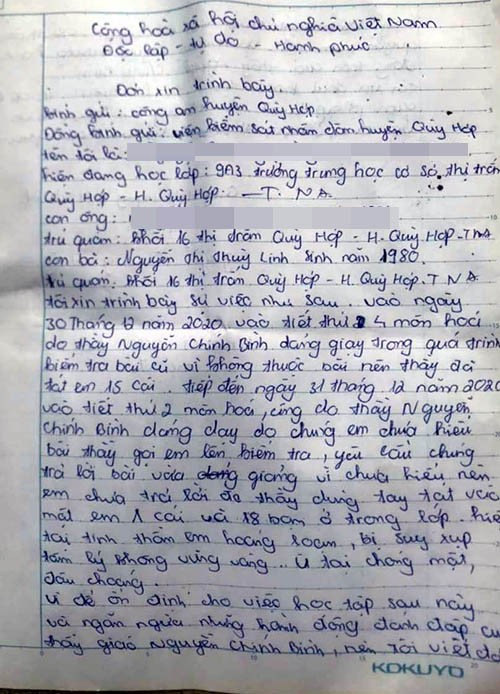 Cộng hoà xã hội chủ nghĩa Việt Nam
Độc lập - tự do - Hạnh phúc
Đơn xin trình bày.
Kính gửi: công an huyện Quỳ Hợp
Đồng kính gửi: viện kiểm sát nhân dân huyện Quỳ Hợp
tên tôi là:
hiện đang học lớp: 9A3 trường trung học cơ sở thị trấn
Quỳ Hợp - H. Quỳ Hợp - T. N A.
con ông:
trú quán: khối 16 thị trấn Quỳ Hợp - H. Quỳ Hợp - T N A
con bà: Nguyễn Thị Thuỳ Linh sinh năm 1980.
trú quán: khối 16 thị trấn Quỳ Hợp - H. Quỳ Hợp. T N A
tôi xin trình bày sự việc như sau. vào ngày
30 tháng 12 năm 2020 vào tiết thứ 4 môn hoá
do thầy Nguyễn Chính Bình đang giạy trong quá trình
kiểm tra bài cũ vì không thuộc bài nên thầy đã
tát em 15 cái. tiếp đến ngày 31 tháng 12 năm 2020
vào tiết thứ 2 môn hoá, cũng do thầy Nguyễn
Chính Bình đang dạy do chúng em chưa hiểu
bài thầy gọi em lên kiểm tra, yêu cầu chúng
trả lời bài vừa giảng vì chưa hiểu nên
em chưa trả lời đã thầy dùng tay tát vào
mặt em 1 cái và 18 bạn ở trong lớp. hiện
tại tinh thần em hoang loạn, bị suy xụp
tâm lý không vững vàng.. ù tai chóng mặt,
đầu choáng.
vì để ổn định cho việc học tập sau này
và ngăn ngừa những hành động đánh đập của
thầy giáo Nguyễn Chính Bình, nên tôi viết đơn
KOKUYO